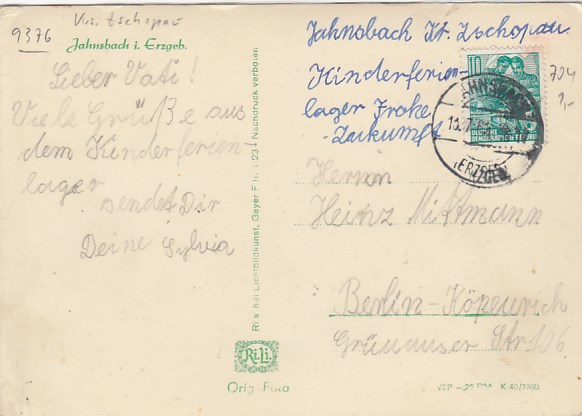 9376
Krs. Zschopau
Jahnsbach i. Erzgeb.
Lieber Vati!
Viele Grüße aus
dem Kinderferien-
lager
sendet Dir
Deine Sylvia
Nachdruck verboten
RiLi.
Orig. Foto
Jahnsbach Kr. Zschopau.
Kinderferien-
lager Frohe
-Zukunft
10
DEUTSCHE
DEMOKRATISCHE
(ERZGEB)
704
1,-
Herrn
Heinz Mittmann
Berlin-Köpenick
Grünauer Str. 106
VEP –,25 DM K 40/1960